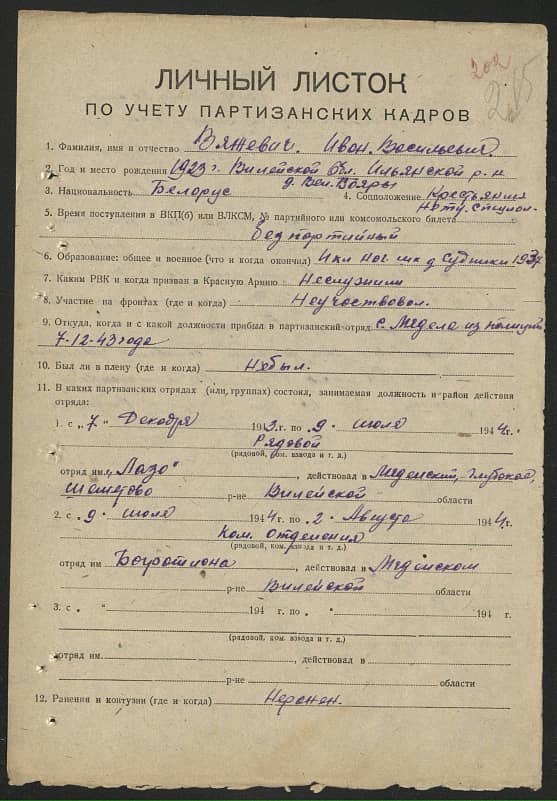 202
ЛИЧНЫЙ ЛИСТОК
ПО УЧЕТУ ПАРТИЗАНСКИХ КАДРОВ
1. Фамилия, имя и отчество Вяжевич. Иван. Васильевич.
2. Год и место рождения 1923 г. Вилейской обл. Ильянской р-н
д. Вел. Бояры
3. Национальность Белорус 4. Соцположение Крестьянин
Нету. специол.
5. Время поступления в ВКП(б) или ВЛКСМ, № партийного или комсомольского билета
Безпартийный
6. Образование: общее и военное (что и когда окончил) 4 кл д Субники 193
7. Каким РВК и когда призван в Красную Армию Неслужили
8. Участие на фронтах (где и когда) Неучаствовал.
9. Откуда, когда и с какой должности прибыл в партизанский отряд с. Медела из полиции
7-12-43 года
10. Был ли в плену (где и когда) Небыл.
11. В каких партизанских отрядах (или группах) состоял, занимаемая должность и район действия
отряда:
1. с „7 " Декабря 1943 г. по „ 9 " июля 1944 г.
Рядовой
(рядовой, ком. взвода и т. д.)
отряд им. „Лазо" , действовал в Меделский, Глубокое,
Шеметово р-не Вилейской области
2. с „ 9 " июля 1944 г. по „ 2 " Августа 1944 г.
Ком. отделения
(рядовой, ком. взвода и т. д.)
отряд им Богротиона , действовал в Меделском
р-не Вилейской области
3. с „ " 194 г. по „ " 194 г.
(рядовой, ком. взвода и т. д.)
отряд им. , действовал в
р-не области
12. Ранения и контузии (где и когда) Неранен.